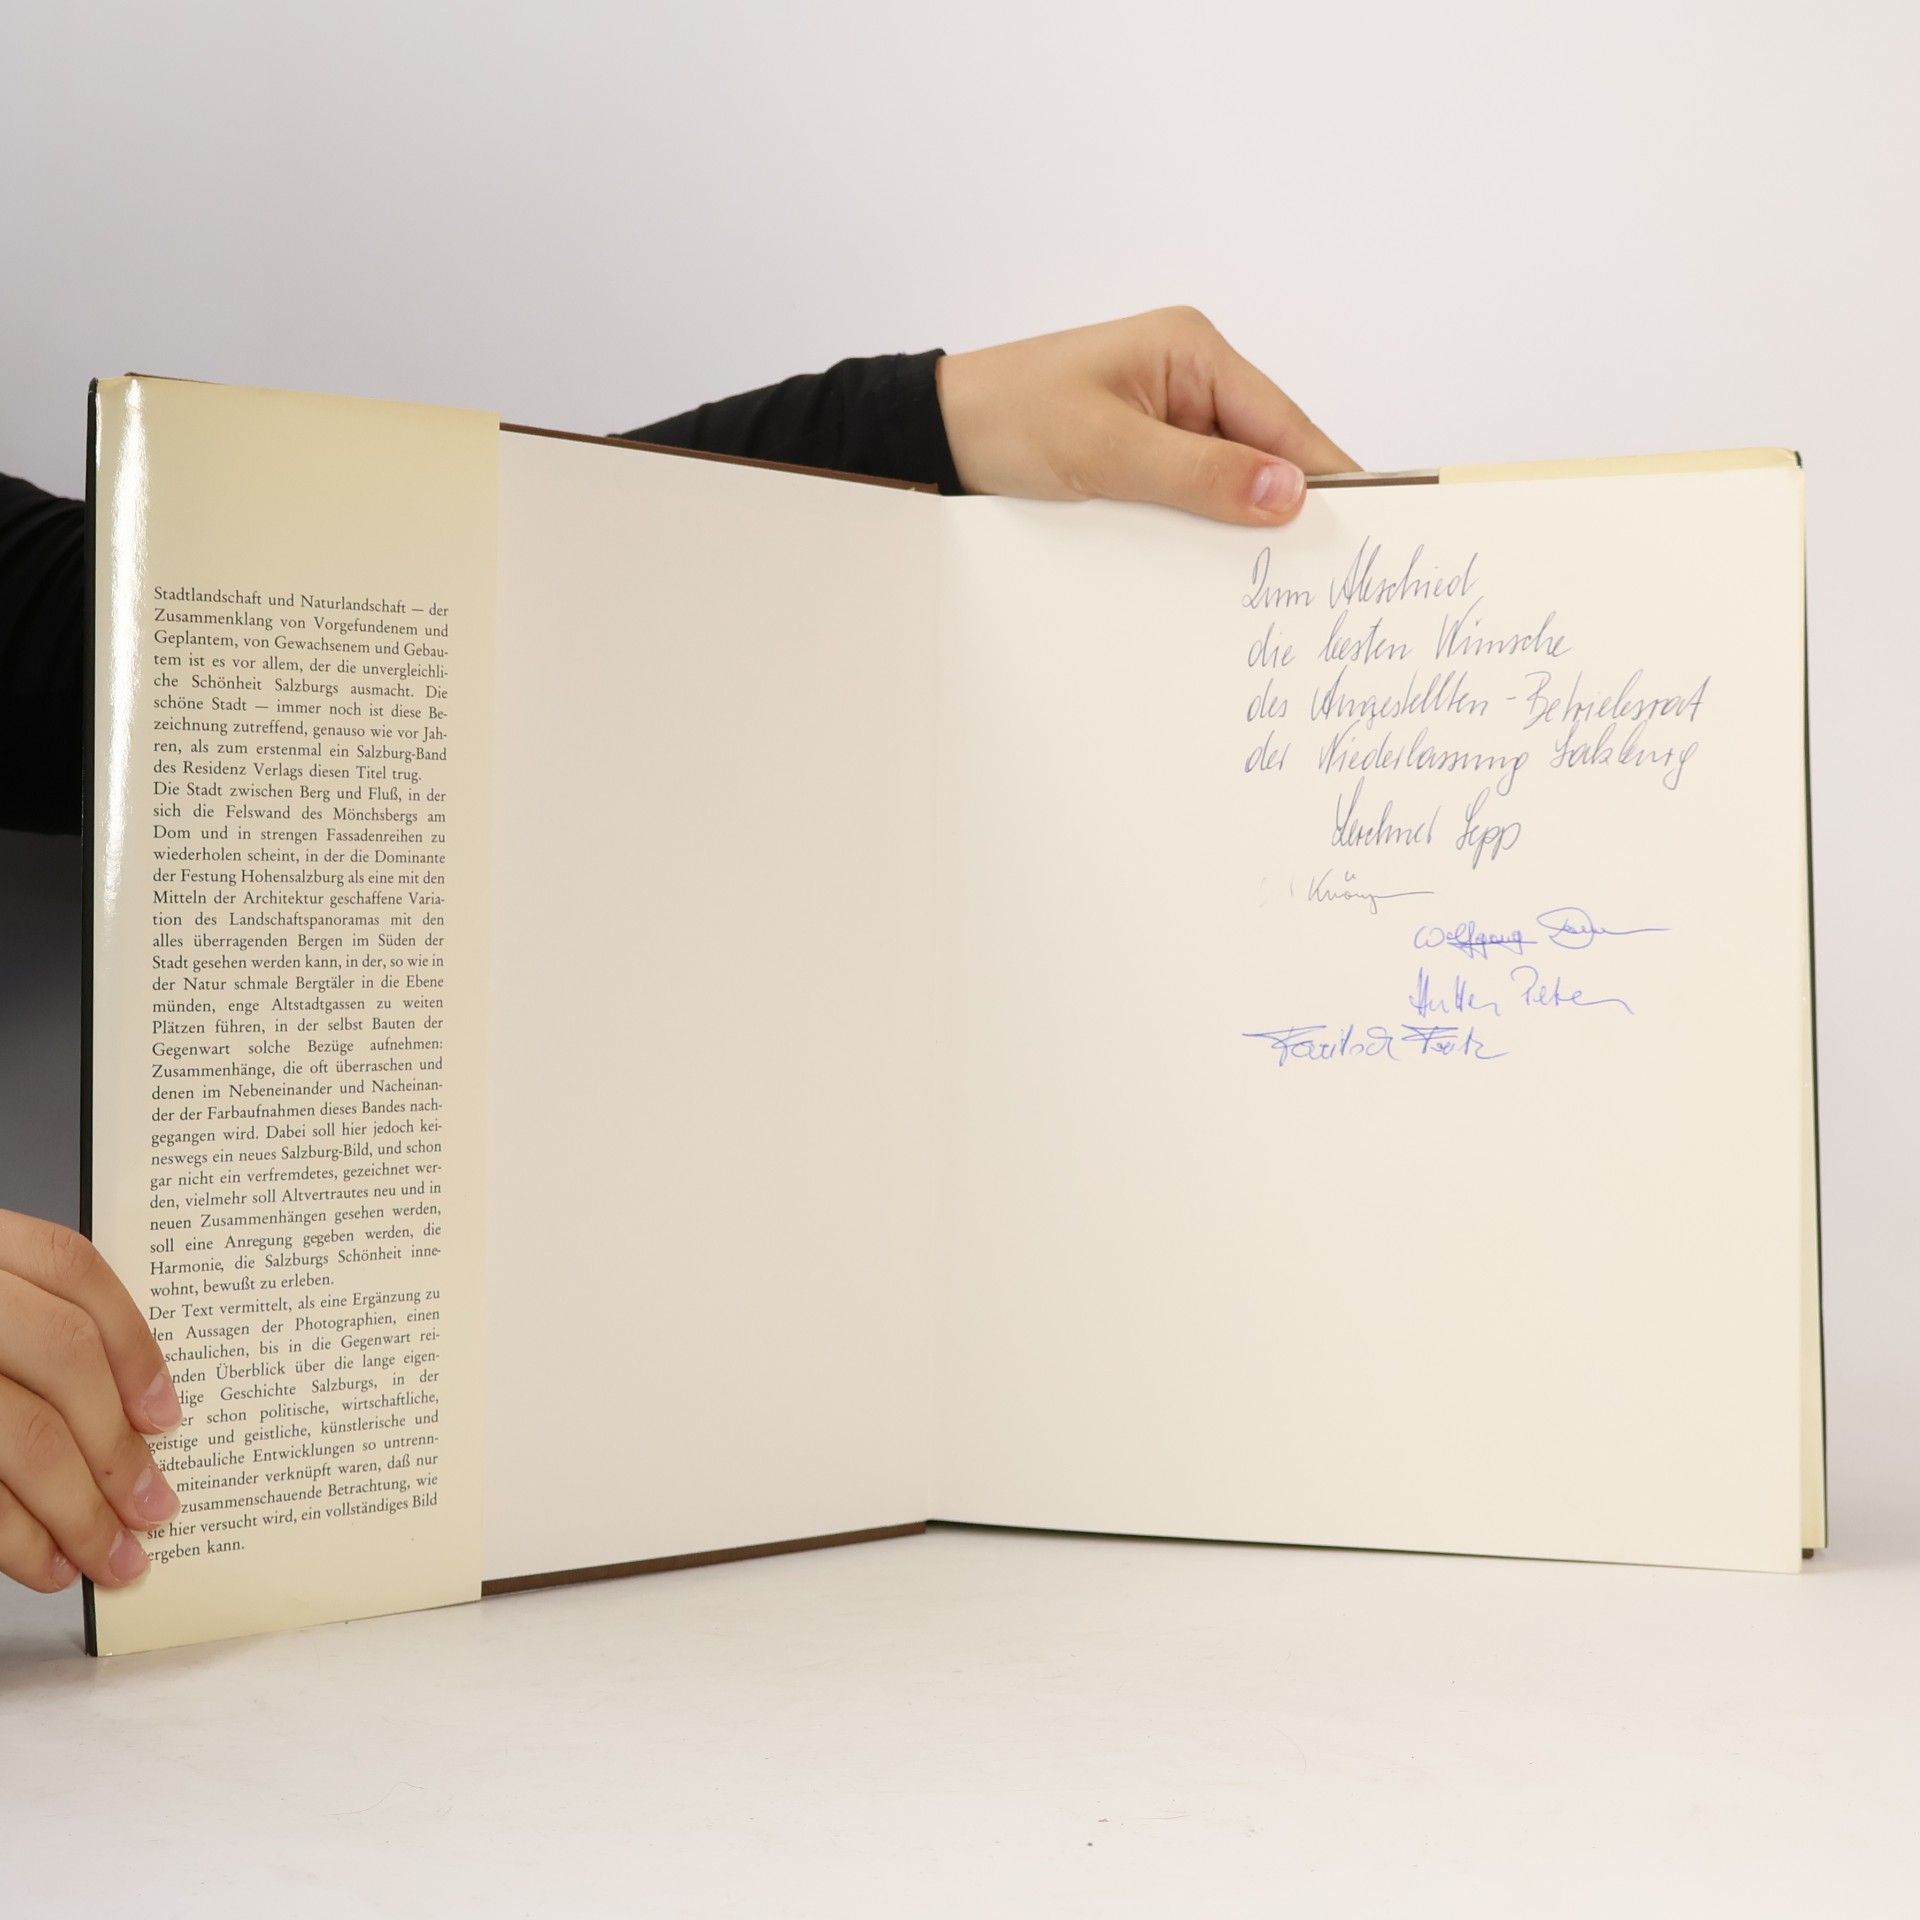 Stadtlandschaft und Naturlandschaft — der
Zusammenklang von Vorgefundenem und
Geplantem, von Gewachsenem und Gebau-
tem ist es vor allem, der die unvergleichli-
che Schönheit Salzburgs ausmacht. Die
schöne Stadt — immer noch ist diese Be-
zeichnung zutreffend, genauso wie vor Jah-
ren, als zum erstenmal ein Salzburg-Band
des Residenz Verlags diesen Titel trug.
Die Stadt zwischen Berg und Fluß, in der
sich die Felswand des Mönchsbergs am
Dom und in strengen Fassadenreihen zu
wiederholen scheint, in der die Dominante
der Festung Hohensalzburg als eine mit den
Mitteln der Architektur geschaffene Varia-
tion des Landschaftspanoramas mit den
alles überragenden Bergen im Süden der
Stadt gesehen werden kann, in der, so wie in
der Natur schmale Bergtäler in die Ebene
münden, enge Altstadtgassen zu weiten
Plätzen führen, in der selbst Bauten der
Gegenwart solche Bezüge aufnehmen:
Zusammenhänge, die oft überraschen und
denen im Nebeneinander und Nacheinan-
der der Farbaufnahmen dieses Bandes nach-
gegangen wird. Dabei soll hier jedoch kei-
neswegs ein neues Salzburg-Bild, und schon
gar nicht ein verfremdetes, gezeichnet wer-
den, vielmehr soll Altvertrautes neu und in
neuen Zusammenhängen gesehen werden,
soll eine Anregung gegeben werden, die
Harmonie, die Salzburgs Schönheit inne-
wohnt, bewußt zu erleben.
Der Text vermittelt, als eine Ergänzung zu
den Aussagen der Photographien, einen
schaulichen, bis in die Gegenwart rei-
nden Überblick über die lange eigen-
dige Geschichte Salzburgs, in der
er schon politische, wirtschaftliche,
geistige und geistliche, künstlerische und
ädtebauliche Entwicklungen so untrenn-
miteinander verknüpft waren, daß nur
zusammenschauende Betrachtung, wie
sie hier versucht wird, ein vollständiges Bild
ergeben kann.
Zum Abschied
die besten Wünsche
des Angestellten-Betriebsrat
der Niederlassung Salzburg
Lerchner Sepp
Wolfgang
Hutter Peter